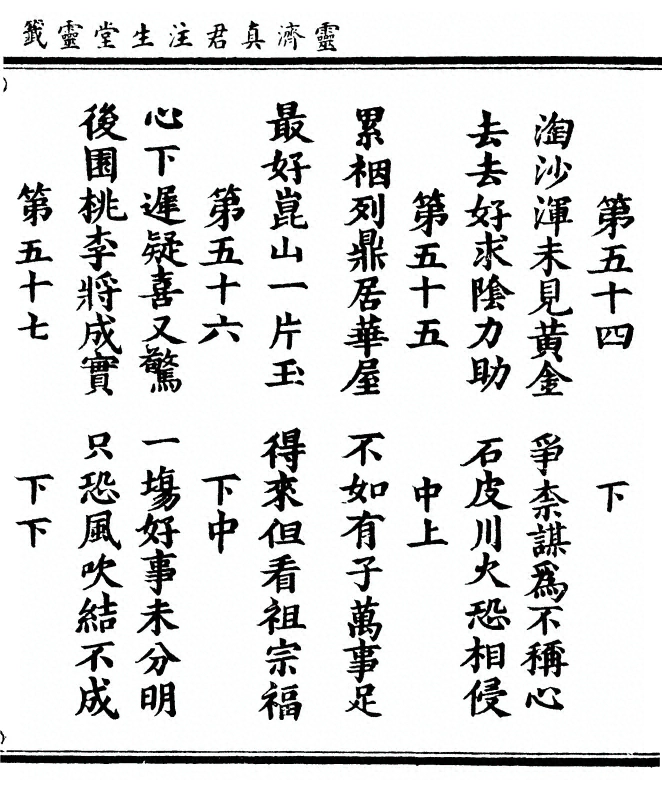 靈濟真君注生堂靈籤
第五十四 下
淘沙渾未見黃金 爭柰謀爲不稱心
去去好求陰力助 石皮川火恐相侵
第五十五 中上
累裀列鼎居華屋 不如有子萬事足
最好崑山一片玉 得來但看祖宗福
第五十六 下中
心下遲疑喜又驚 一場好事未分明
後園桃李將成實 只恐風吹結不成
第五十七 下下